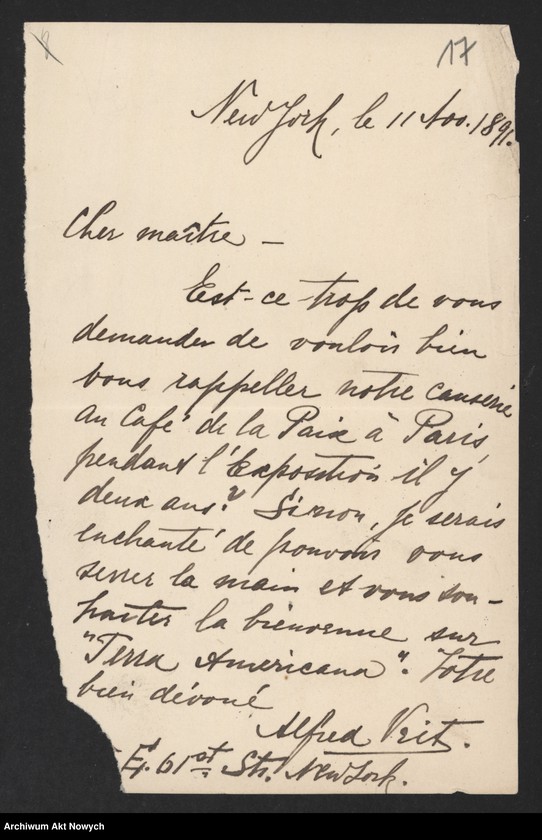 17
New York, le 11 Nov. 1891.
Cher maître –
Est-ce trop de vous
demander de vouloir bien
vous rappeller notre causerie
au Café de la Paix à Paris,
pendant l'Exposition il y
deux ans? Sinon, je serais
enchanté de pouvoir vous
serrer la main et vous sou-
haiter la bienvenue sur
"Terra Americana". Votre
bien dévoué
Alfred Veit.
E. 61st Str. New York.
Archiwum Akt Nowych